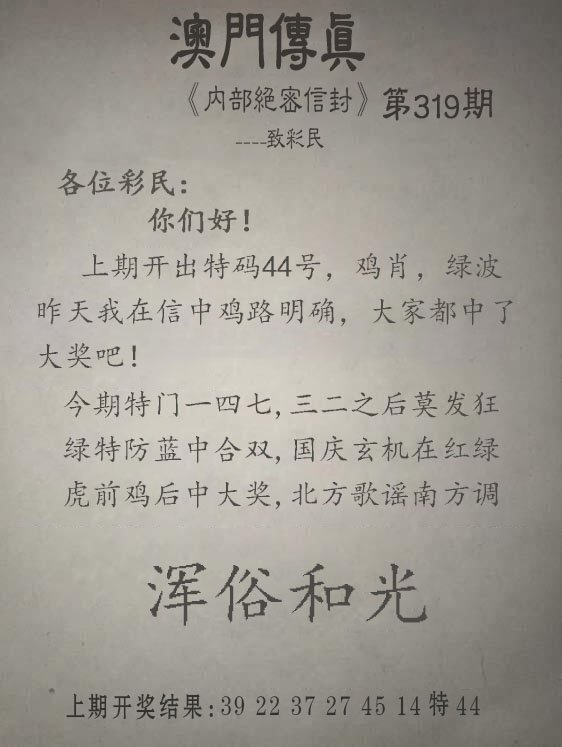 澳門傳眞
《内部絕密信封》第319期
----致彩民
各位彩民：
你们好！
上期开出特码44号，鸡肖，绿波
昨天我在信中鸡路明确，大家都中了
大奖吧！
今期特门一四七,三二之后莫发狂
绿特防蓝中合双,国庆玄机在红绿
虎前鸡后中大奖,北方歌谣南方调
浑俗和光
上期开奖结果:39 22 37 27 45 14特44